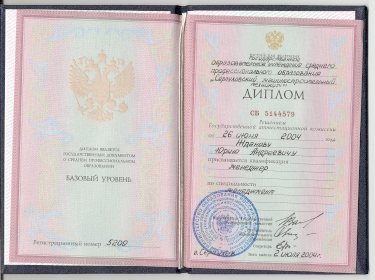 ДИПЛОМ ЯВЛЯЕТСЯ
ГОСУДАРСТВЕННЫМ ДОКУМЕНТОМ
О СРЕДНЕМ ПРОФЕССИОНАЛЬНОМ
ОБРАЗОВАНИИ
БАЗОВЫЙ УРОВЕНЬ
Регистрационный номер 5200
Государственное
образовательное учреждение среднего
профессионального образования
"Серпуховский машиностроительный
техникум"
ДИПЛОМ
СБ 5144579
Решением
Государственной аттестационной комиссии
от 26 июня 2004 года
Жданову
Юрию Андреевичу
присваивается квалификация
менеджер
по специальности
менеджмент
2 июля 2004г.